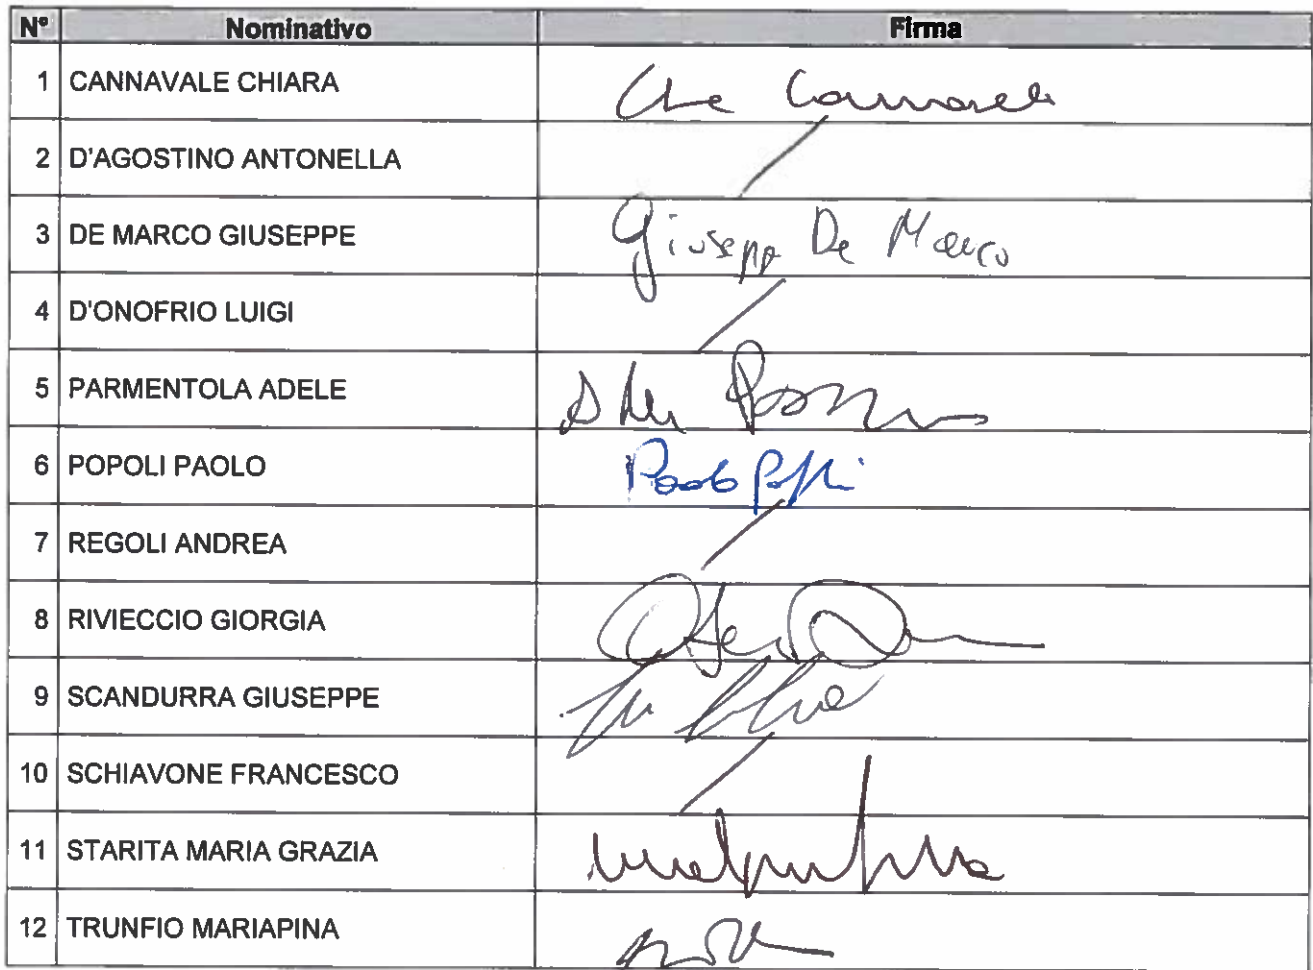 N° Nominativo Firma
1 CANNAVALE CHIARA
2 D'AGOSTINO ANTONELLA
3 DE MARCO GIUSEPPE Giuseppe De Marco
4 D'ONOFRIO LUIGI
5 PARMENTOLA ADELE
6 POPOLI PAOLO Paolo Popoli
7 REGOLI ANDREA
8 RIVIECCIO GIORGIA
9 SCANDURRA GIUSEPPE
10 SCHIAVONE FRANCESCO
11 STARITA MARIA GRAZIA
12 TRUNFIO MARIAPINA